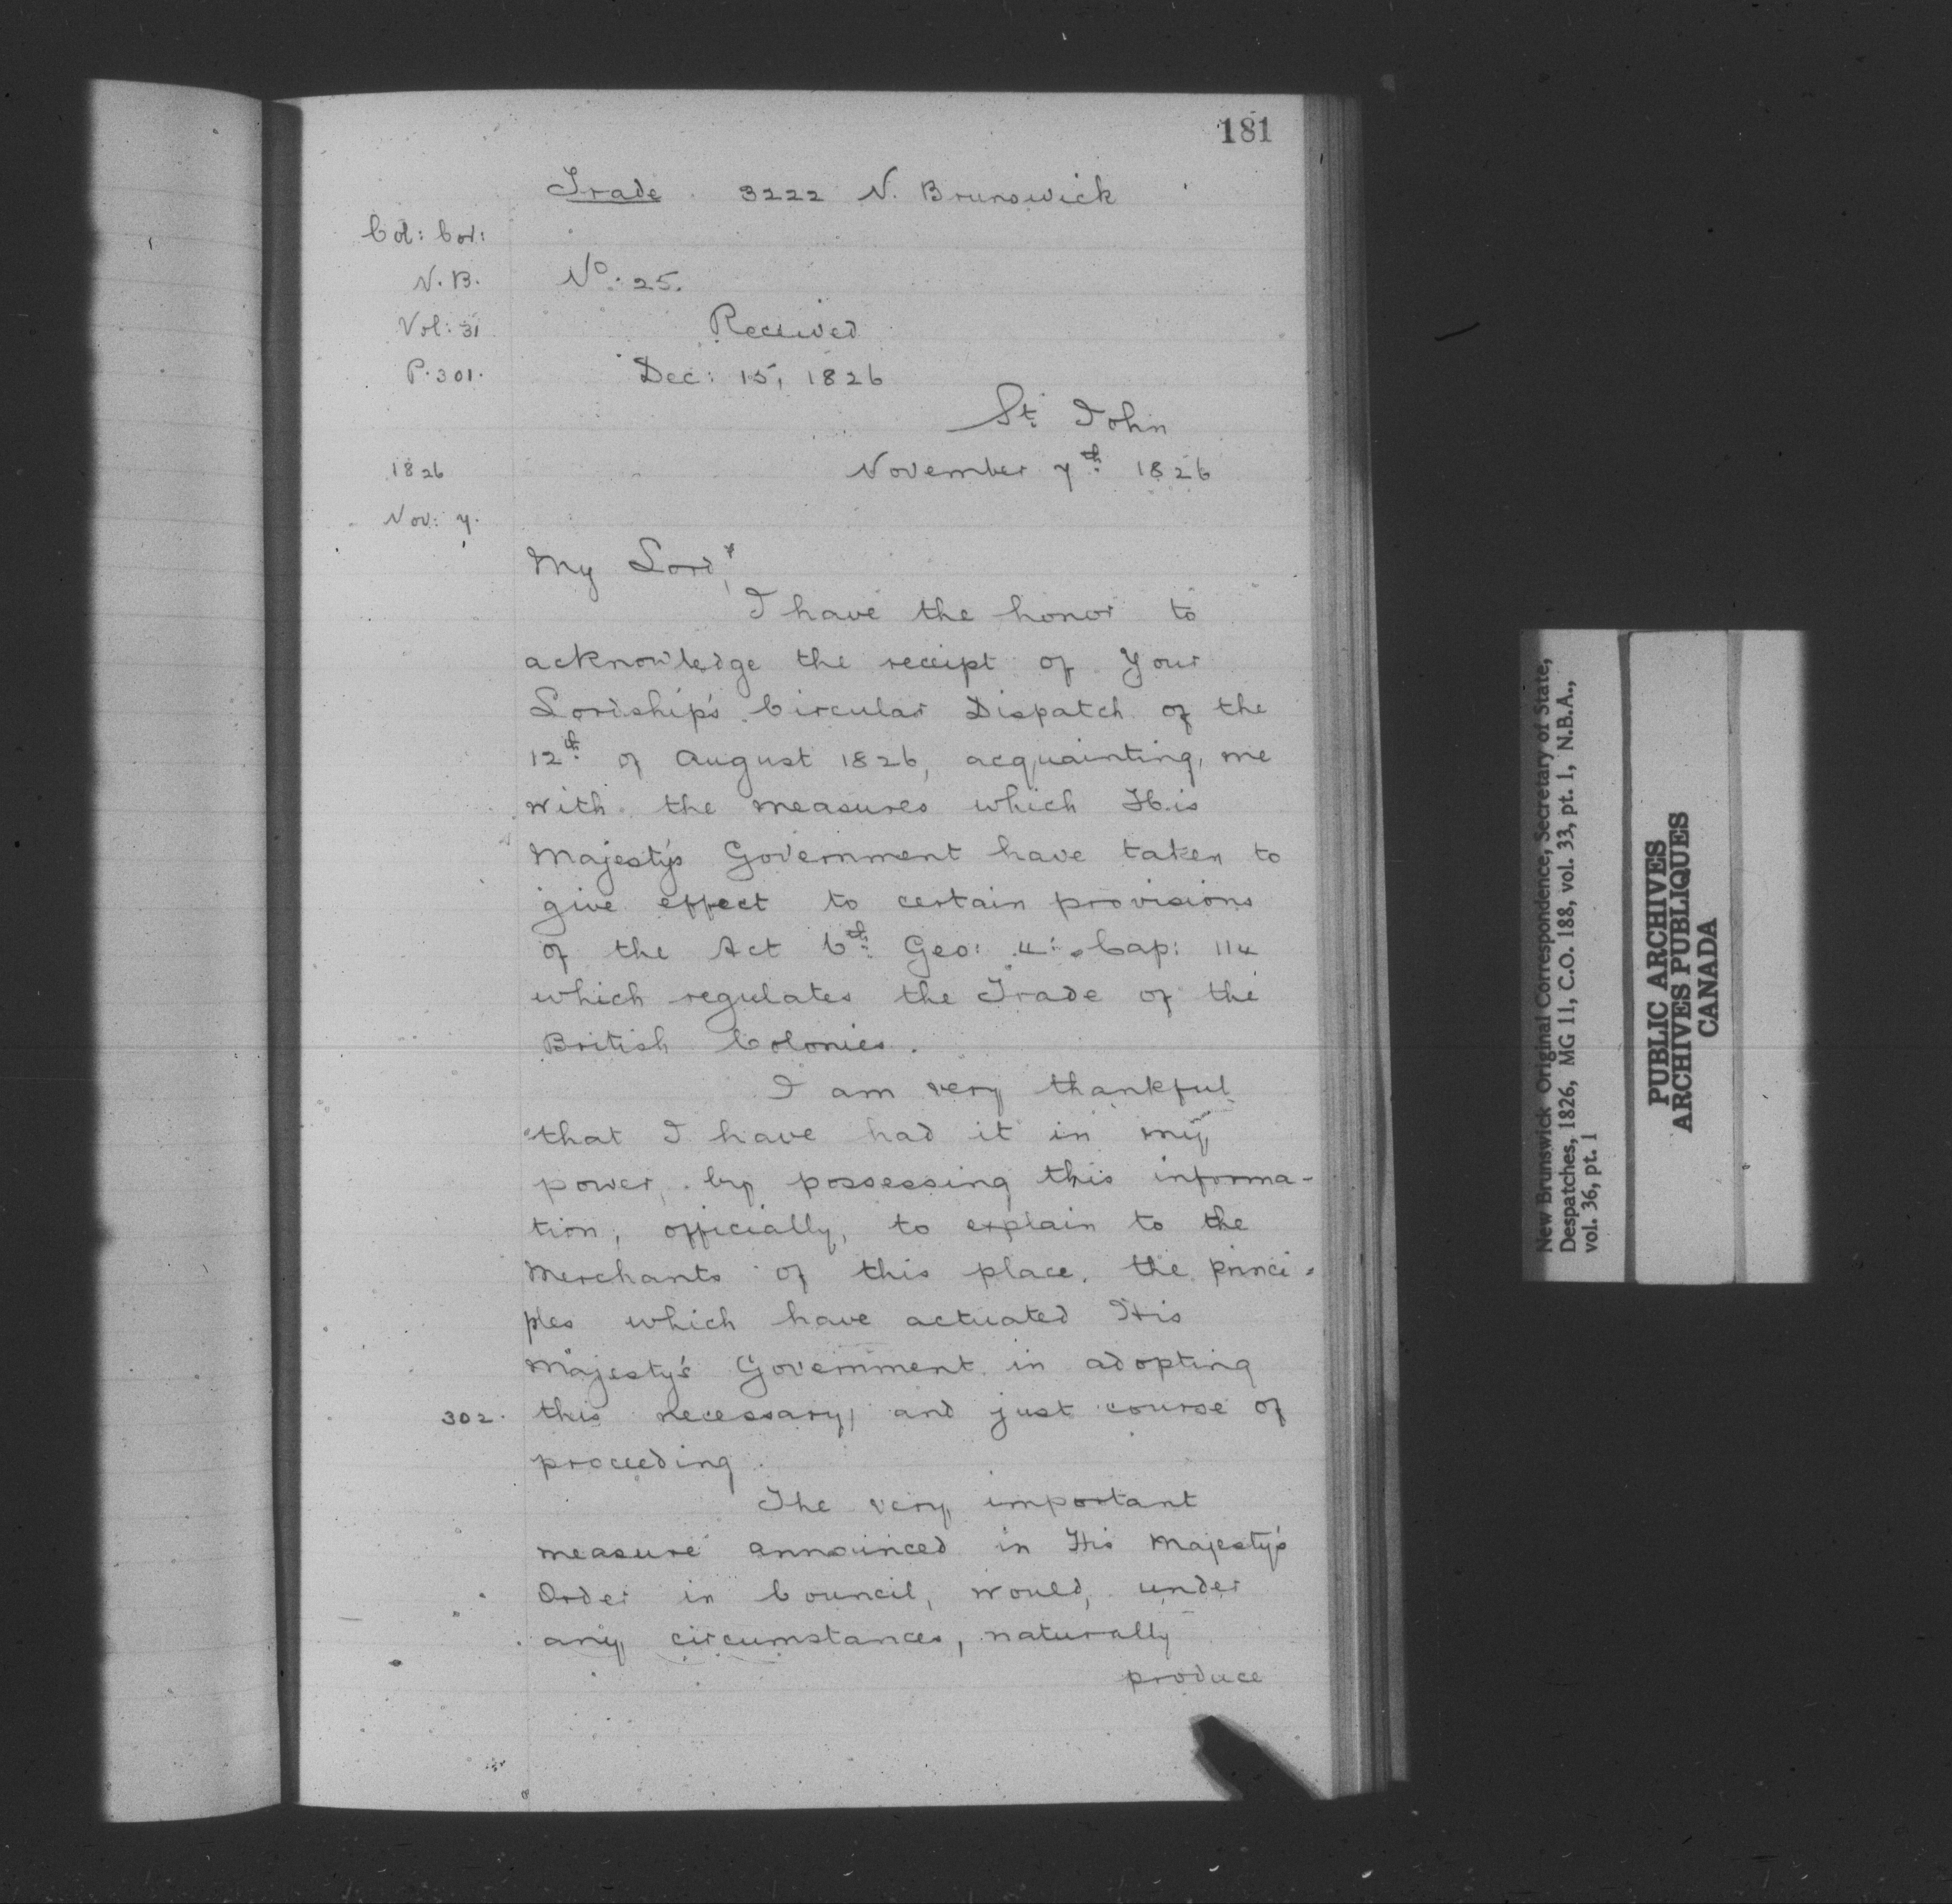 181
Trade 3222 N. Brunswick
Col: Cor:
N.B.
Vol: 31
P. 301.
No: 25.
Received
Dec: 15, 1826
St. John
November 7th 1826
1826
Nov: 7.
My Lord,
I have the honor to
acknowledge the receipt of Your
Lordship's Circular Dispatch of the
12th of August 1826, acquainting me
with the measures which His
Majesty's Government have taken to
give effect to certain provisions
of the Act 6th Geo: 4: Cap: 114
which regulates the Trade of the
British Colonies.
I am very thankful
that I have had it in my
power, by possessing this informa-
tion, officially, to explain to the
Merchants of this place, the princi-
ples which have actuated His
Majesty's Government in adopting
302. this necessary and just course of
proceeding.
The very important
measure announced in His Majesty's
Order in Council, would, under
any circumstances, naturally
produce
New Brunswick Original Correspondence, Secretary of State,
Despatches, 1826, MG 11, C.O. 188, vol. 33, pt. 1, N.B.A.,
vol. 36, pt. 1
PUBLIC ARCHIVES
ARCHIVES PUBLIQUES
CANADA